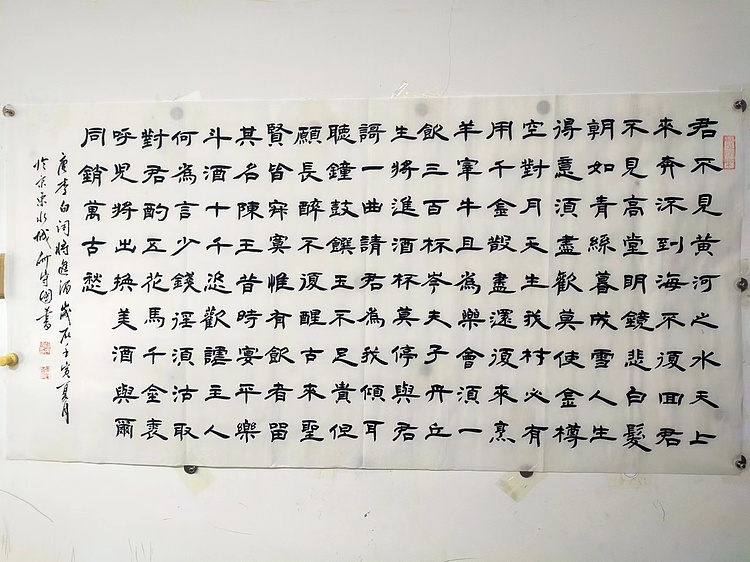 君不見黃河之水天上
來奔流到海不復回君
不見高堂明鏡悲白髮
朝如青絲暮成雪人生
得意須盡歡莫使金樽
空對月天生我材必有
用千金散盡還復來烹
羊宰牛且為樂會須一
飲三百杯岑夫子丹丘
生將進酒杯莫停與君
歌一曲請君為我傾耳
聽鐘鼓饌玉不足貴但
願長醉不復醒古來聖
賢皆寂寞惟有飲者留
其名陳王昔時宴平樂
斗酒十千恣歡謔主人
何為言少錢徑須沽取
對君酌五花馬千金裘
呼兒將出換美酒與爾
同銷萬古愁
唐李白詞將進酒歲在壬寅夏月
於京東水城書